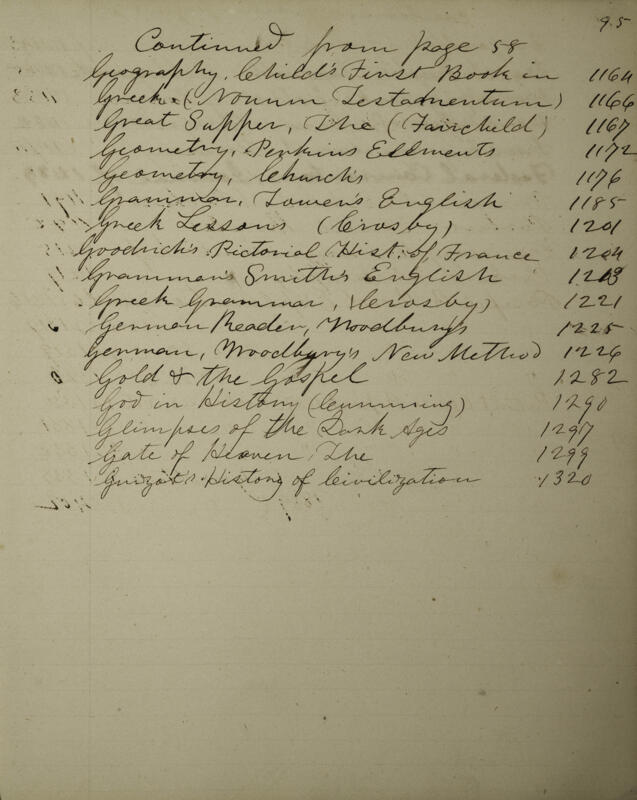 95
Continued from page 58
Geography, Child's First Book in 1164
Greek (Novum Testamentum) 1166
Great Supper, The (Fairchild) 1167
Geometry, Perkins Ellments 1172
Geometry, Church's 1176
Grammar, Tower's English 1185
Greek Lessons (Crosby) 1201
Goodrich's Pictorial Hist. of France 1204
Grammar Smith's English 1213
Greek Grammar, (Crosby) 1221
German Reader, Woodbury's 1225
German, Woodbury's New Method 1226
Gold & the Gospel 1282
God in History (Cumming) 1290
Glimpses of the Dark Ages 1297
Gate of Heaven The 1299
Guizot's History of Civilization 1320